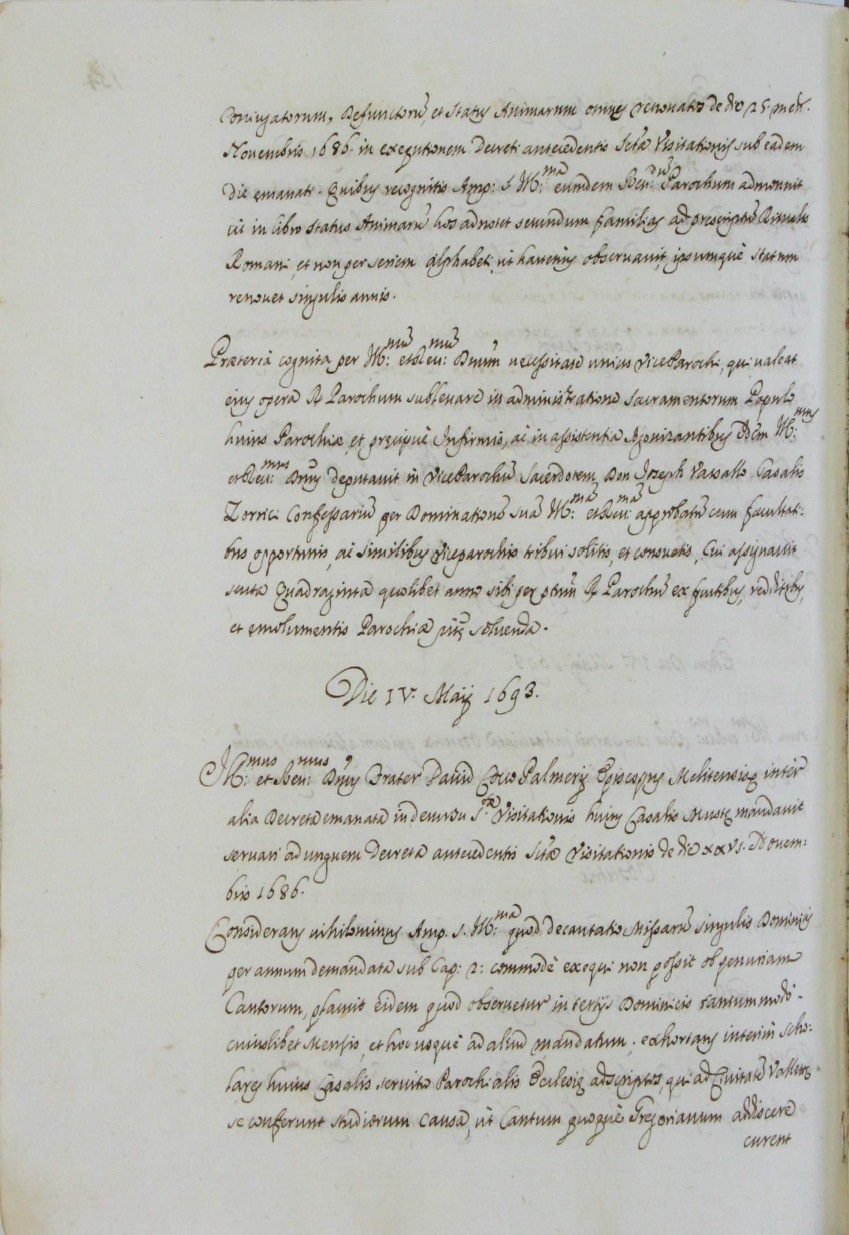 Coniugatorum, Defunctorũ, et Status Animarum omnes renouatos de die 25. mens.
Nouembris 1686. in exequtionem Decreti antecedentis Sctæ Visitationis sub eadem
die emanati. Quibus recognitis Amp: S. Ill:ma eumdem Reu:dũ Parochum admonuit
ut in libro status Animarũ hos adnotet secundum familias ad prescriptũ Ritualis
Romani, et non per seriem Alphabeti, ut hactenus obseruauit, ipsumquè statum
renouet singulis annis.
Prætereà cognita per Ill:mũ et Reu:mũ Dnum necessitate unius ViceParochi, qui ualeat
eius operâ R. Parochum subleuare in administratione Sacramentorum Populo
huius Parochiæ, et præcipuè Infirmis, ac in assistentia Agonizantibus Idem Ill:mus
et Reu:mus Dnus deputauit in ViceParochũ Sacerdotem Don Joseph Vassallo Casalis
Zurrici Confessariũ per Dominationẽ Suã Ill:mã et Reu:mã approbatũ cum facultati:
bus opportunis, ac similibus Viceparochis tribui solitis, et consuetis, Cui assignauit
scuta Quadraginta quolibet anno sibi per ptum R. Parochũ ex fructibus, redditibus,
et emolumentis Parochiæ ptæ soluenda.
Die IV. Maij 1693.
Ill:mus et Reu:mus Dnus Frater Dauid Cocco Palmerij Episcopus Melitensis inter
alia Decreta emanata in decursu S.tæ Visitationis huius Casalis Mustæ mandauit
seruari ad unguem Decreta antecedentis Sctæ Visitationis de die xxvi. Nouem:
bris 1686.
Considerans nihilominus Amp. S. Ill:ma quod decantatio Missarũ singulis Dominicis
per annum demandata sub Cap: 2: commodè exequi non possit ob penuriam
Cantorum, placuit eidem quod obseruetur in tertijs Dominicis tantummodò
cuiuslibet Mensis, et hoc usquè ad aliud mandatum; exhortans interim Scho:
lares huius Casalis seruitio Parochialis Ecclesiæ adscriptos, qui ad Ciuitatẽ Vallettæ
se conferunt studiorum causâ, ut Cantum quoquè Gregorianum addiscere
curent